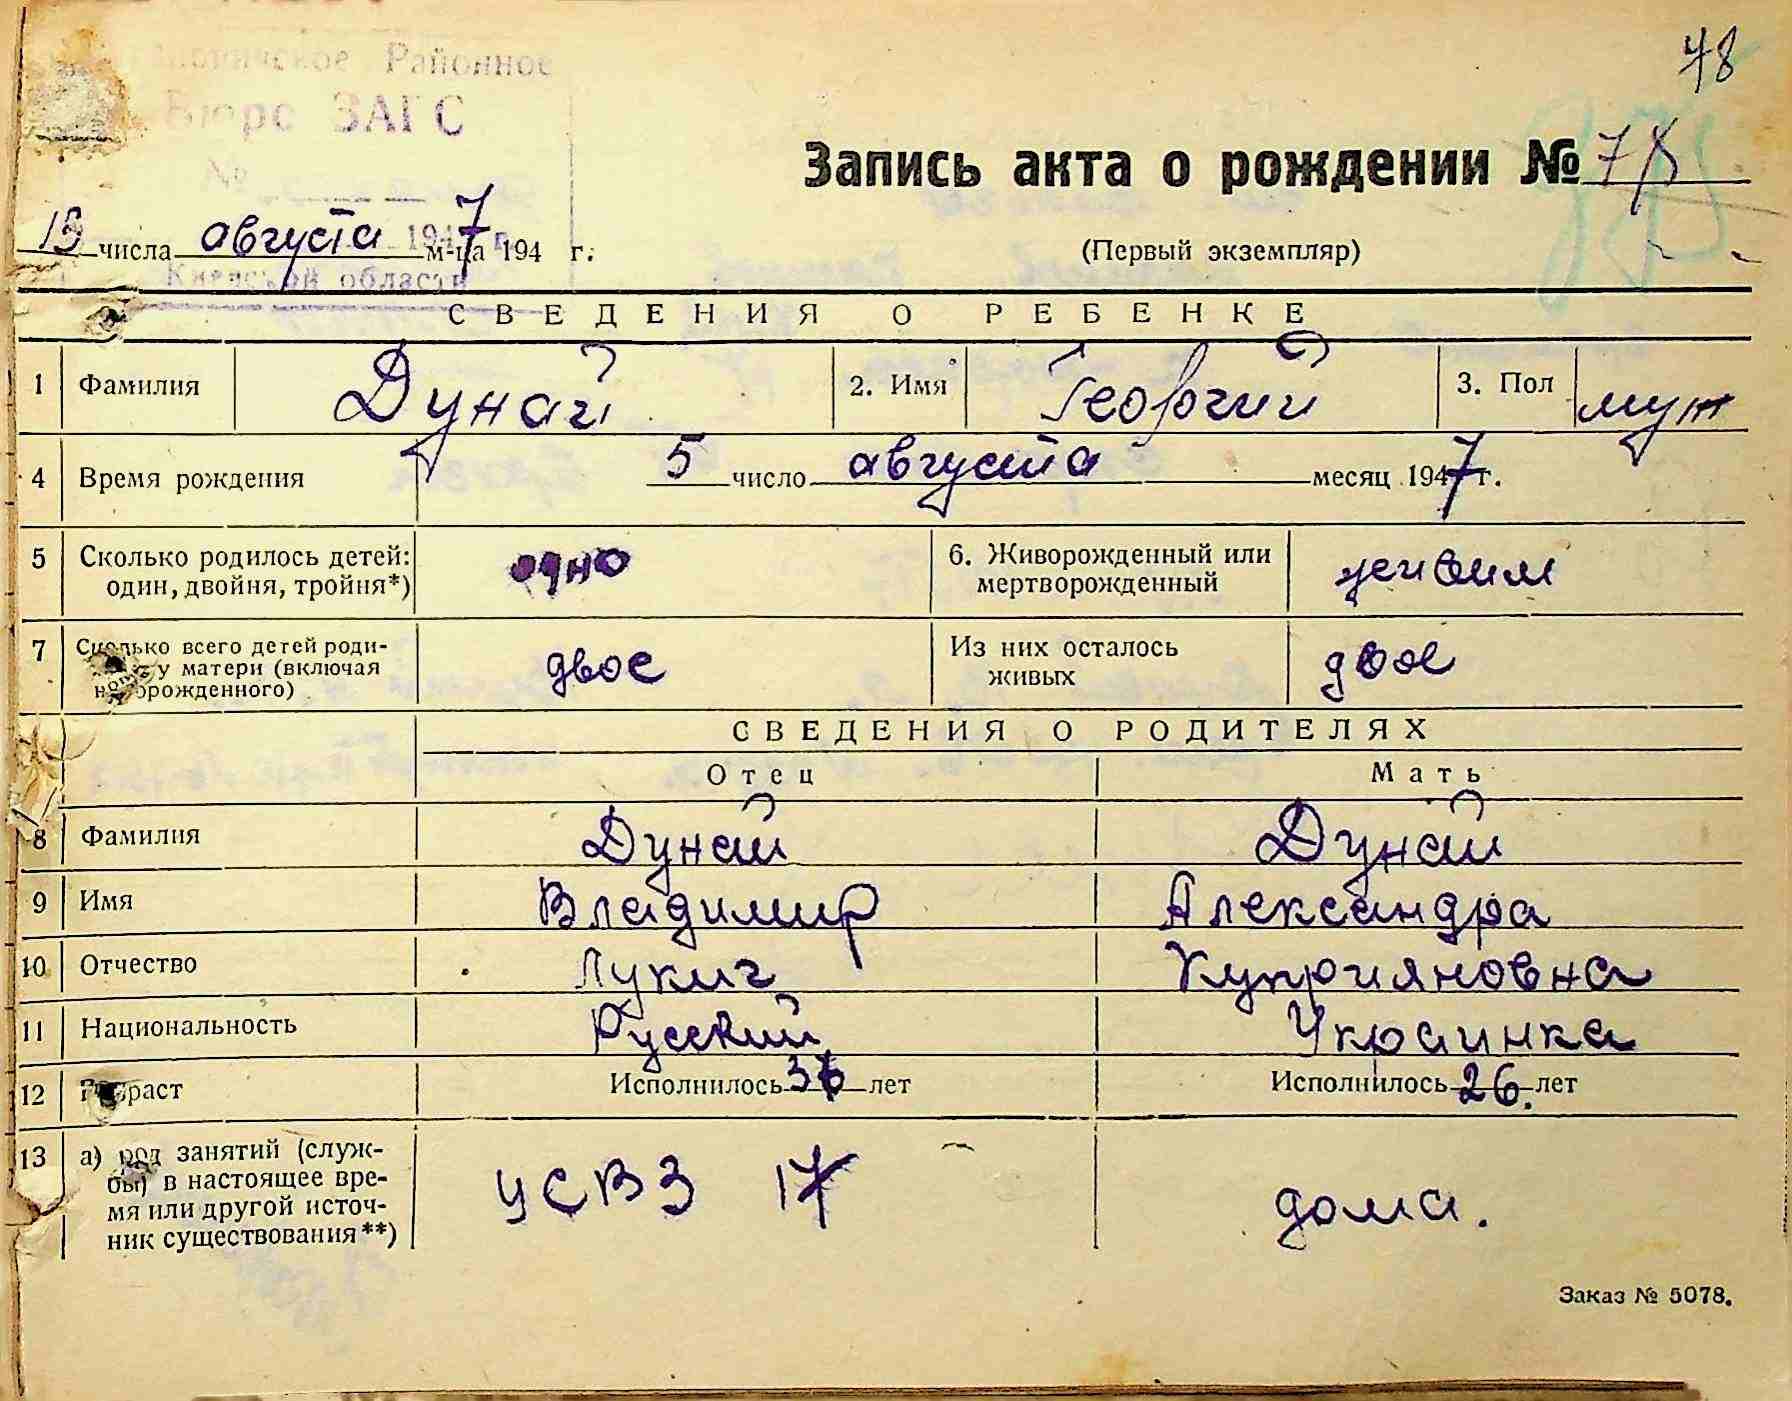 78
Районное
Бюро ЗАГС
№
Запись акта о рождении № 78
15 числа августа м-ца 1947 г.
(Первый экземпляр)
Киевской области
СВЕДЕНИЯ О РЕБЕНКЕ
1 Фамилия Дунай 2. Имя Георгий 3. Пол муж
4 Время рождения 5 число августа месяц 1947 г.
5 Сколько родилось детей: один, двойня, тройня*) одно 6. Живорожденный или мертворожденный живим
7 Сколько всего детей роди- у матери (включая новорожденного) двое Из них осталось живых двое
СВЕДЕНИЯ О РОДИТЕЛЯХ
Отец Мать
8 Фамилия Дунай Дунай
9 Имя Владимир Александра
10 Отчество Лукич Куприяновна
11 Национальность Русский Украинка
12 Возраст Исполнилось лет Исполнилось 26 лет
13 а) род занятий (служ-
бы) в настоящее вре-
мя или другой источ-
ник существования**) УСВЗ 17 дома.
Заказ № 5078.